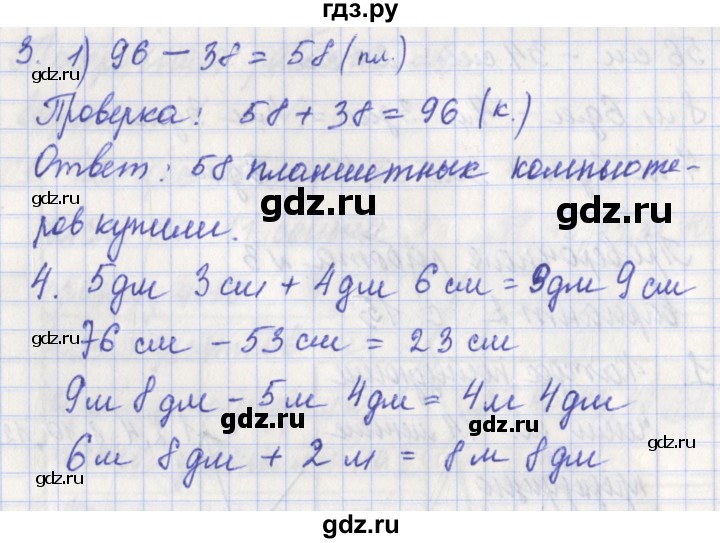 гдз.ру
3. 1) 96 - 38 = 58 (пл.)
Проверка: 58 + 38 = 96 (к.)
Ответ: 58 планшетных компьюте-
ров купили.
4. 5 дм 3 см + 4 дм 6 см = 9 дм 9 см
76 см - 53 см = 23 см
9 м 8 дм - 5 м 4 дм = 4 м 4 дм
6 м 8 дм + 2 м = 8 м 8 дм
gdz.ru
gdz.ru
gdz.ru
gdz.ru
gdz.ru
gdz.ru
gdz.ru
gdz.ru
gdz.ru
gdz.ru
gdz.ru
gdz.ru
gdz.ru